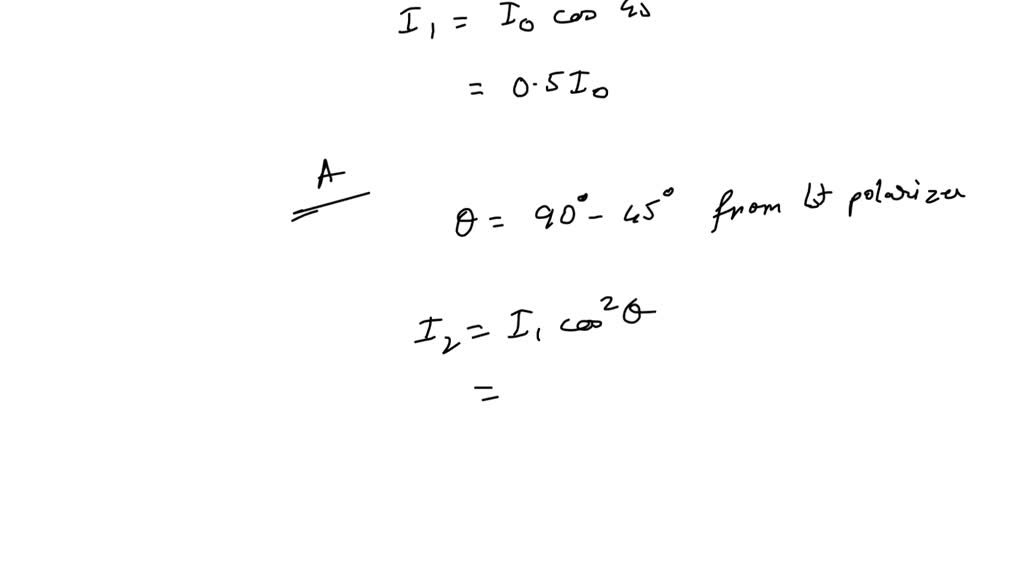 I₁ = I₀ cos 45
= 0.5 I₀
A
θ = 90° - 45° from 1st polarizer
I₂ = I₁ cos²θ
=